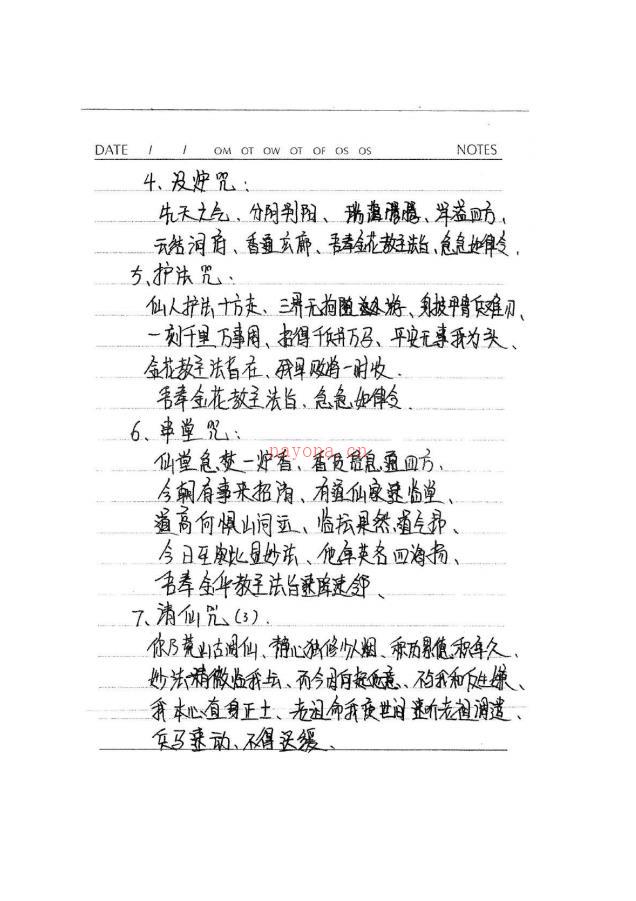 DATE / / OM OT OW OT OF OS OS NOTES
4、没炉咒:
先天之气、分阴判阳、瑞蔼腾腾、洋溢四方、
云结洞府、香通玄廊、吾奉金花教主法旨、急急如律令、
5、护法咒:
仙人护法十方走、三界无拘随处游、身披甲胄兵难刃、
一刻千里万事周、招得千兵万马、平安无事我为头、
金花教主法旨在、我早败将一时收.
吾奉金花教主法旨、急急如律令.
6、串堂咒:
nayona.cn
仙堂急焚一炉香、香急通四方、
今朝有事来招请、有道仙家来临堂、
道高何惧山河远、临坛果然道气昂、
今日至此显妙法、他年英名四海扬、
吾奉金华教主法旨
7、清仙咒(3).
你乃荒山古洞仙、静心独修少人烟、积万累德积年久、
妙法稍微临我与、而今
我本心直身正士、老祖命我度世间老祖调遣、
兵马速动、不得迟缓、